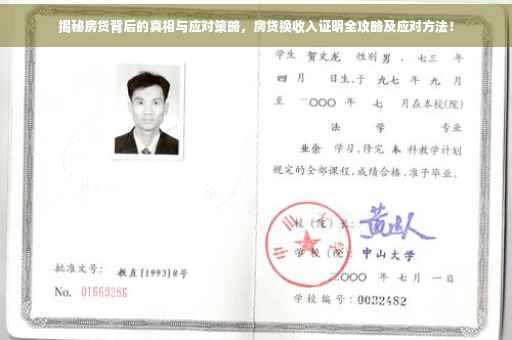 揭秘房贷背后的真相与应对策略，房贷换收入证明全攻略及应对方法！
学生 贺文龙 性别 男 ，七三 年
四 月 日生，于 九七 年 九 月
至 二〇〇〇 年 七 月在本校(院)
法 学 专业
业余 学习，修完 本 科教学计划
规定的全部课程，成绩合格，准予毕业。
校（院）长：
学校（院）：中山大学
二〇〇〇 年 七 月 一 日
批准文号： 教直[1993]8号
No. 01663286
学校编号：0032482